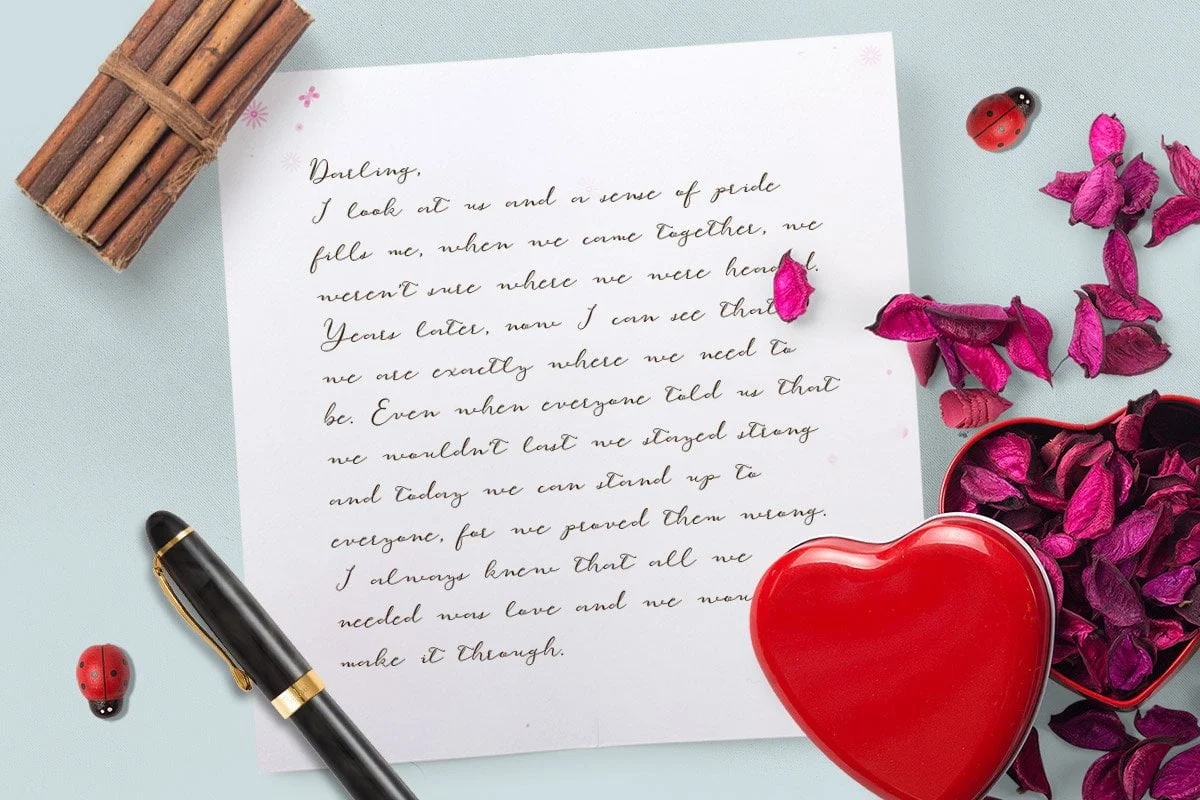 Darling,
I look at us and a sense of pride
fills me, when we came together, we
weren't sure where we were
Years later, now I can see that
we are exactly where we need to
be. Even when everyone told us that
we wouldn't last we stayed strong
and today we can stand up to
everyone, for we proved them wrong.
I always knew that all we
needed was love and we
make it through.